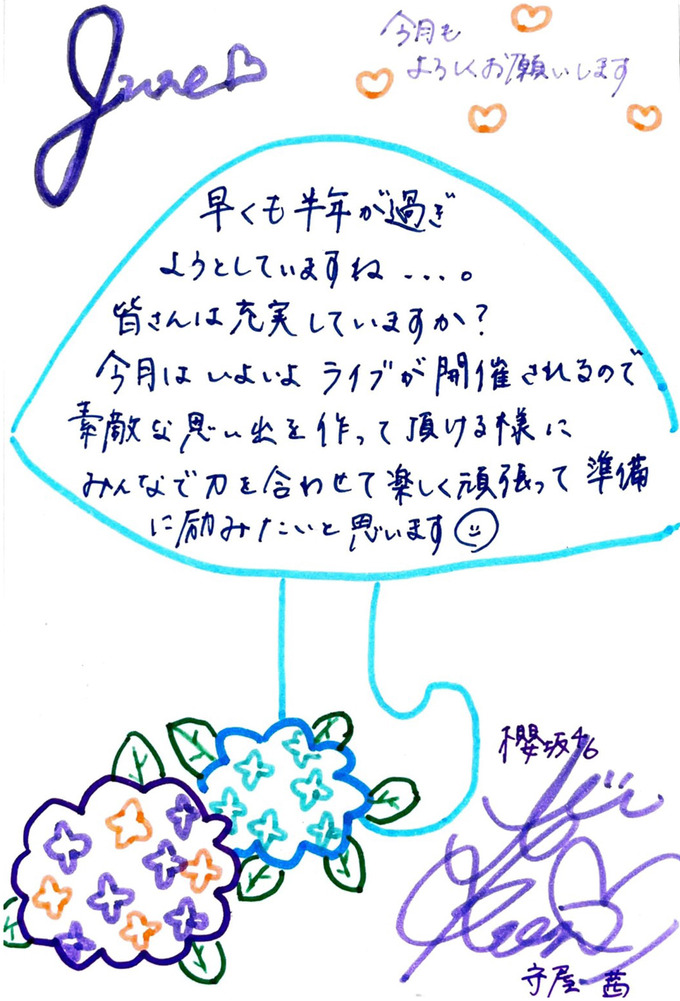 June
今月も
よろしくお願いします
早くも半年が過ぎ
ようとしていますね....。
皆さんは充実していますか?
今月はいよいよライブが開催されるので
素敵な思い出を作って頂ける様に
みんなで力を合わせて楽しく頑張って準備
に励みたいと思います
櫻坂46
守屋茜